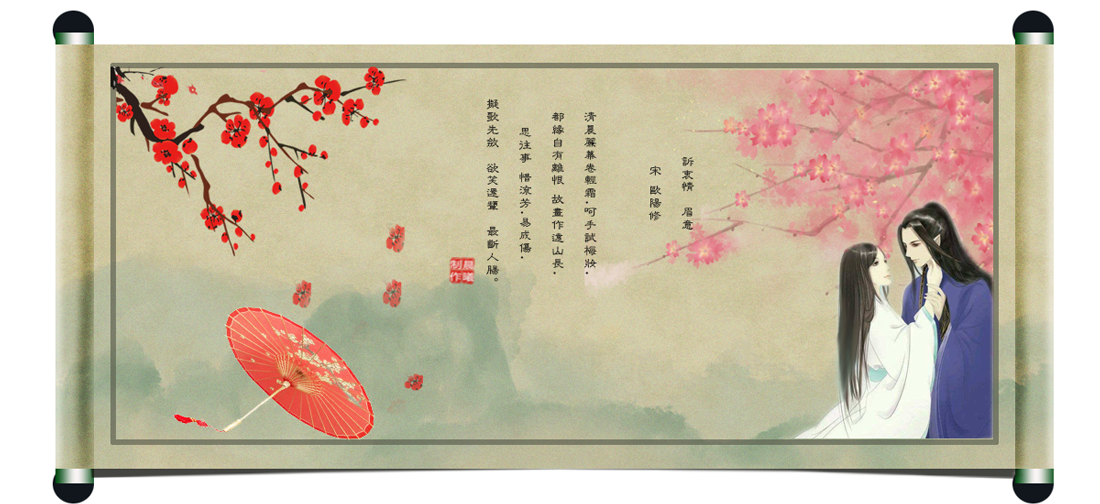 訴衷情　眉意
宋　歐陽修
清晨簾幕卷輕霜·呵手試梅妝·
都緣自有離恨　故畫作遠山長·
思往事　惜流芳·易成傷·
擬歌先斂　欲笑還顰　最斷人腸。
晨曦
制作